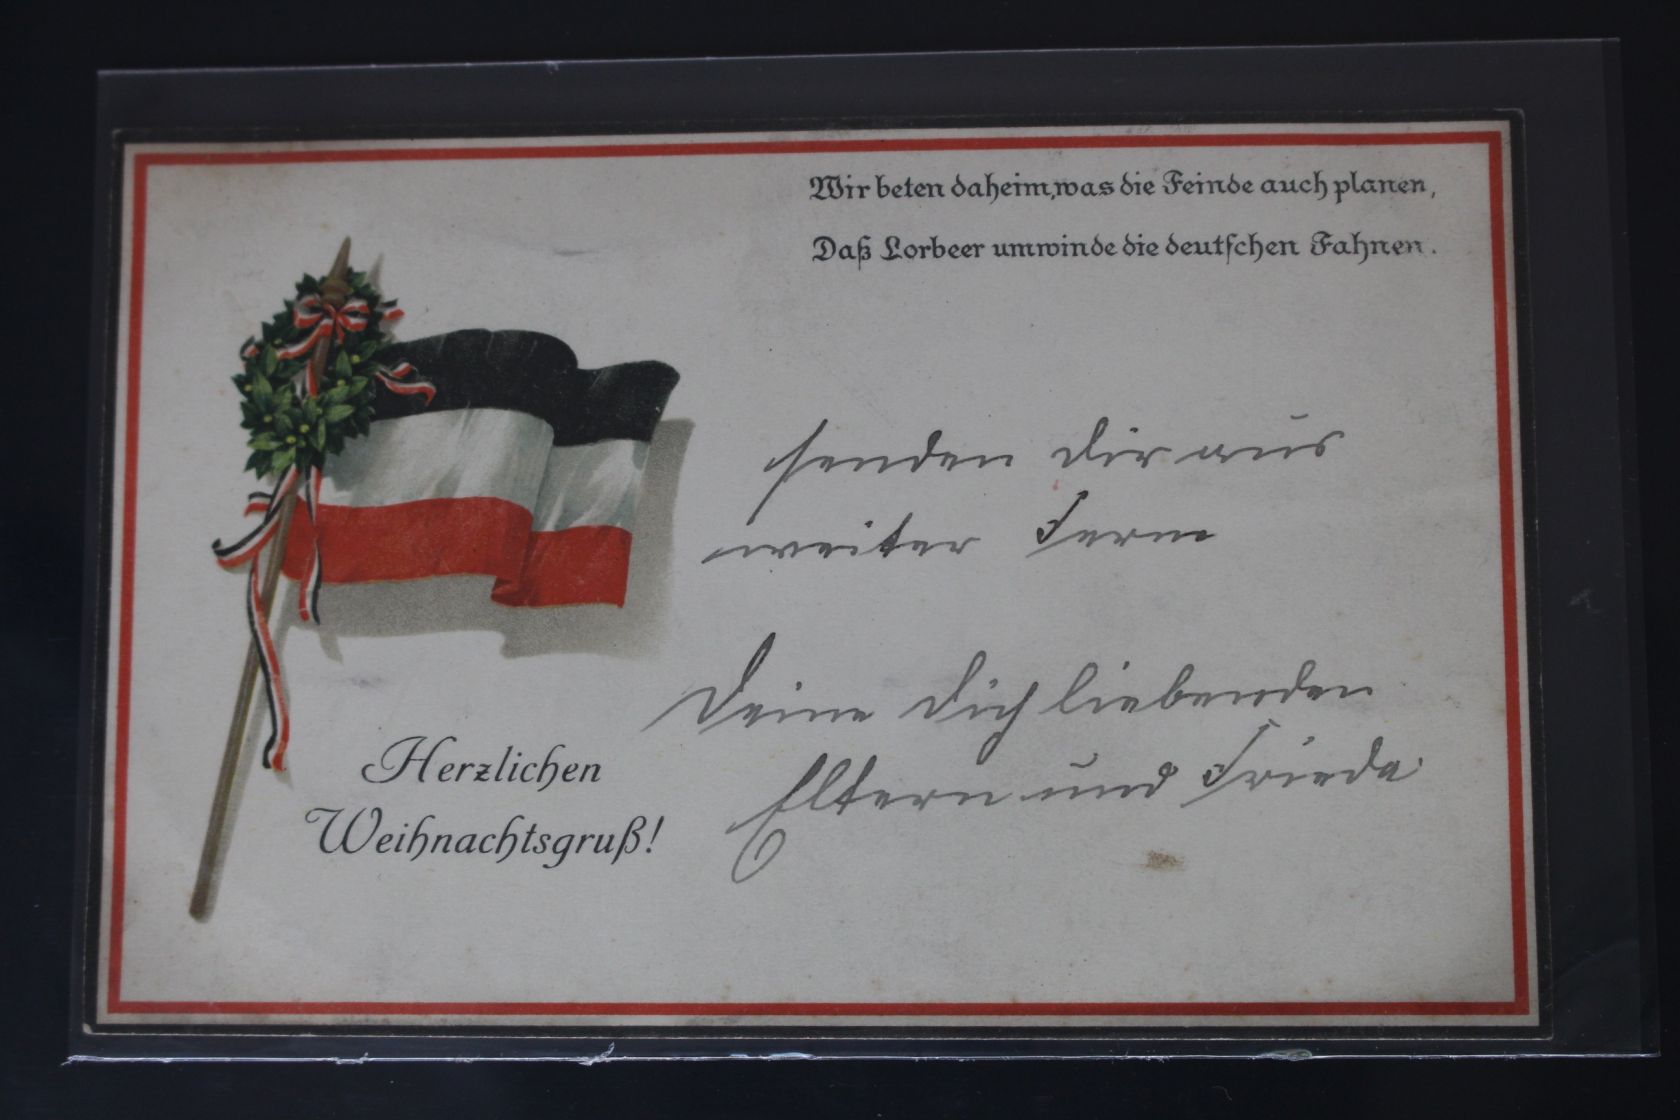 Wir beten daheim, was die Feinde auch planen,
Daß Lorbeer umwinde die deutschen Fahnen.
senden dir aus
weiter Ferne
Deine dich liebenden
Eltern und Frieda.
Herzlichen
Weihnachtsgruß!